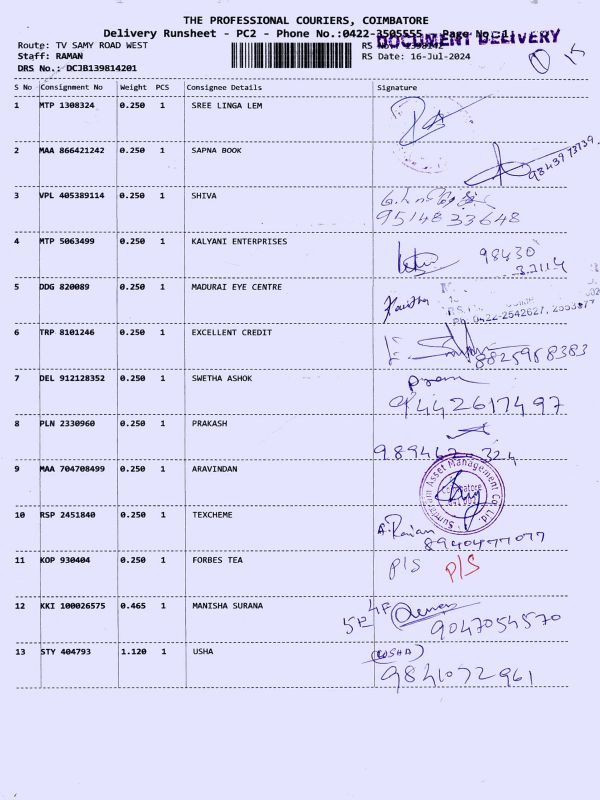 THE PROFESSIONAL COURIERS, COIMBATORE
Delivery Runsheet - PC2 - Phone No.:0422-3505555 Page No.:1
DOCUMENT DELIVERY
Route: TV SAMY ROAD WEST RS No.:
Staff: RAMAN RS Date: 16-Jul-2024
DRS No.: DCJB139814201
S No Consignment No Weight PCS Consignee Details Signature
1 MTP 1308324 0.250 1 SREE LINGA LEM
2 MAA 866421242 0.250 1 SAPNA BOOK
3 VPL 405389114 0.250 1 SHIVA
9514833648
4 MTP 5063499 0.250 1 KALYANI ENTERPRISES
98430
32114
5 DDG 820089 0.250 1 MADURAI EYE CENTRE
Ph.0422-2542627,
6 TRP 8101246 0.250 1 EXCELLENT CREDIT
8825958383
7 DEL 912128352 0.250 1 SWETHA ASHOK
9442617497
8 PLN 2330960 0.250 1 PRAKASH
9 MAA 704708499 0.250 1 ARAVINDAN
Sundaram Asset Management Co. Ltd.
Coimbatore
10 RSP 2451840 0.250 1 TEXCHEME
8940477077
11 KOP 930404 0.250 1 FORBES TEA P/S P/S
12 KKI 100026575 0.465 1 MANISHA SURANA
5E 4F
9047054570
13 STY 404793 1.120 1 USHA (USHA)
9841072961